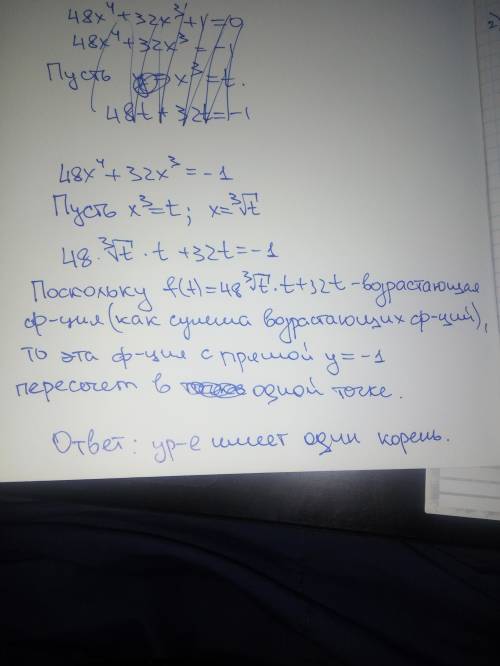 48x⁴+32x³+1=0
48x⁴+32x³=-1
Пусть x³=t.
48t+32t=-1
48x⁴+32x³=-1
Пусть x³=t; x=∛t
48·∛t·t+32t=-1
Поскольку f(t)=48∛t·t+32t-возрастающая
ф-ция(как сумма возрастающих ф-ций),
то эта ф-ция с прямой y=-1
пересечет в одной точке.
Ответ: ур-е имеет один корень.